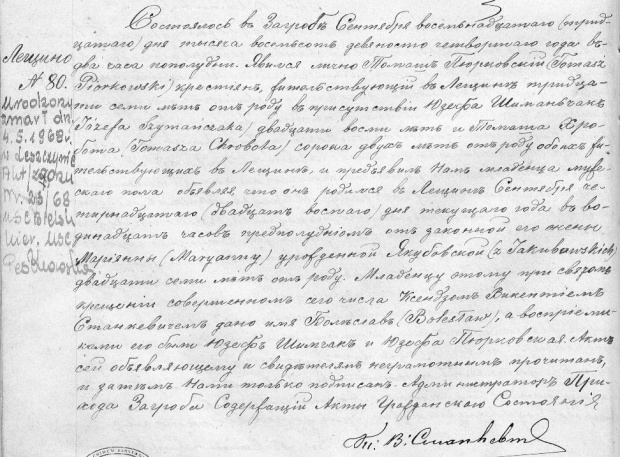 Лещино
№ 80.
Urodzony
zmarł dn.
4.5.1968 r.
w Leszczynie
Akt zgonu
Nr. 23/68
USC
Kier. USC
Состоялось въ Загробѣ Сентября восемьнадцатаго (трид-
цатаго) дня тысяча восемьсотъ девяносто четвертаго года въ
два часа пополудни. Явился лично Томашъ Пюрковскій (Tomasz
Piorkowski) крестьянинъ, жительствующій въ Лещинѣ тридца-
ти семи лѣтъ отъ роду въ присутствіи Юзефа Шиманьчакъ
(Józefa Szymańczaka) двадцати восьми лѣтъ и Томаша Хро-
бота (Tomasza Chrobota) сорока двухъ лѣтъ отъ роду обоихъ жи-
тельствующихъ въ Лещинѣ, и предъявилъ Намъ младенца муже-
скаго пола объявляя, что онъ родился въ Лещинѣ Сентября че-
тырнадцатаго (двадцать шестаго) дня текущаго года въ во-
динадцать часовъ предполуднемъ отъ законной его жены
Маріянны (Maryanny) урожденной Якубовской (z Jakubowskich)
двадцати семи лѣтъ отъ роду. Младенцу этому при святомъ
крещеніи совершенномъ сего числа Ксендзомъ Викентіемъ
Станкевичемъ дано имя Болеславъ (Bolesław), а воспріемни-
ками его были Юзефъ Шимчакъ и Юзефа Пюрковская. Актъ
сей объявляющему и свидѣтелямъ неграмотнымъ прочитанъ,
и затѣмъ Нами только подписанъ. Администраторъ При-
хода Загроба Содержащій Акты Гражданскаго Состоянія
Кс. В. Станкевичъ